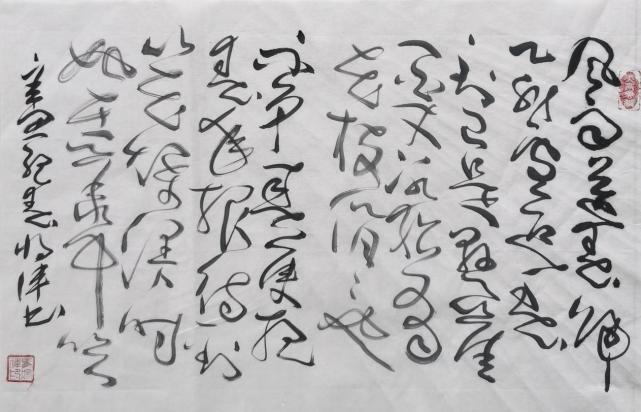 风雨送春归
飞雪迎春
到已是悬崖
百丈冰犹有
花枝俏俏也
不争春只把
春来报待到
山花烂漫时
她在丛中笑
春 津书